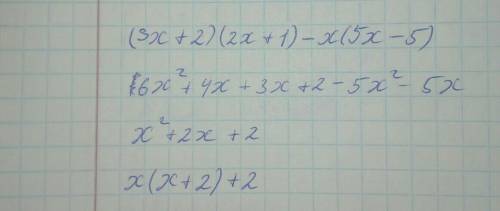 (3x+2)(2x+1)-x(5x-5)
6x²+4x+3x+2-5x²-5x
x²+2x+2
x(x+2)+2